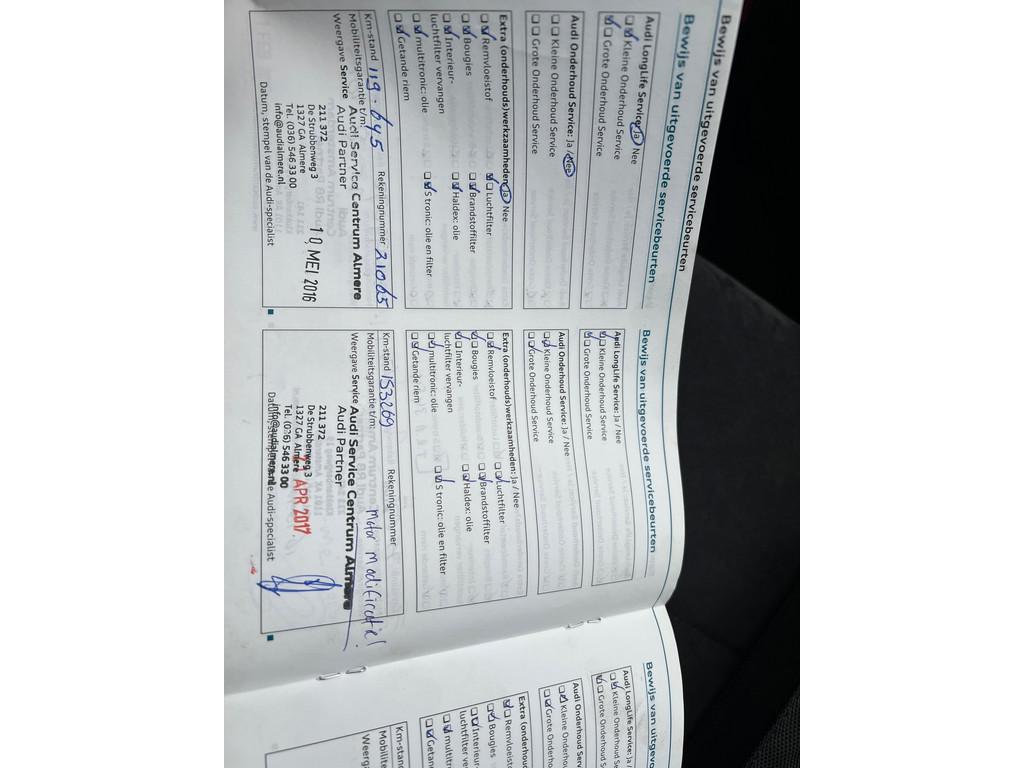 Bewijs van uitgevoerde servicebeurten
Bewijs van uitgevoerde servicebeurten
Audi LongLife Service: Ja Nee
Kleine Onderhoud Service
Grote Onderhoud Service
Audi Onderhoud Service: Ja / Nee
Kleine Onderhoud Service
Grote Onderhoud Service
Extra (onderhouds)werkzaamheden: Ja Nee
Remvloeistof
Luchtfilter
Bougies
Brandstoffilter
Interieur-
luchtfilter vervangen
Haldex: olie
multitronic: olie
S tronic: olie en filter
Getande riem
Km-stand 119.645 Rekeningnummer 21065
Mobiliteitsgarantie t/m:
Weergave Service
Audi Service Centrum Almere
Audi Partner
211 372
De Strubbenweg 3
1327 GA Almere
Tel. (036) 546 33 00
info@audialmere.nl
10 MEI 2016
Datum, stempel van de Audi-specialist
Bewijs van uitgevoerde servicebeurten
Audi LongLife Service: Ja / Nee
Kleine Onderhoud Service
Grote Onderhoud Service
Audi Onderhoud Service: Ja / Nee
Kleine Onderhoud Service
Grote Onderhoud Service
Extra (onderhouds)werkzaamheden: Ja / Nee
Remvloeistof
Luchtfilter
Bougies
Brandstoffilter
Interieur-
luchtfilter vervangen
Haldex: olie
multitronic: olie
S tronic: olie en filter
Getande riem
Km-stand 153269 Rekeningnummer
Mobiliteitsgarantie t/m: Motor Modificatie!
Weergave Service
Audi Service Centrum Almere
Audi Partner
211 372
De Strubbenweg 3
1327 GA Almere
Tel. (036) 546 33 00
info@audialmere.nl
APR 2017
Datum, stempel van de Audi-specialist
Bewijs van uitgevo
Audi LongLife Service: Ja
Kleine Onderhoud S
Grote Onderhoud S
Audi Onderhoud Servic
Kleine Onderhoud
Grote Onderhoud
Extra (onderhoud
Remvloeistof
Bougies
Interieur-
luchtfilter ve
multitro
Getan
Km-stan
Mobilite
Weerga